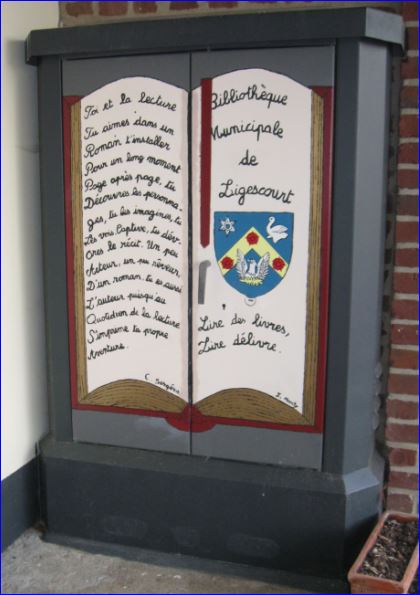 Toi et la lecture
Tu aimes dans un
Roman t'installer
Pour un long moment
Page après page, tu
Découvres les personna-
ges, tu les imagines, tu
Les vois. Captive, tu dév-
ores le récit. Un peu
Acteur, un peu rêveur
D'un roman, tu es aussi
L'auteur puisqu'au
Quotidien de la lecture
S'imprime ta propre
Aventure.
Bibliothèque
Municipale
de
Ligescourt
Lire des livres,
Lire délivre.